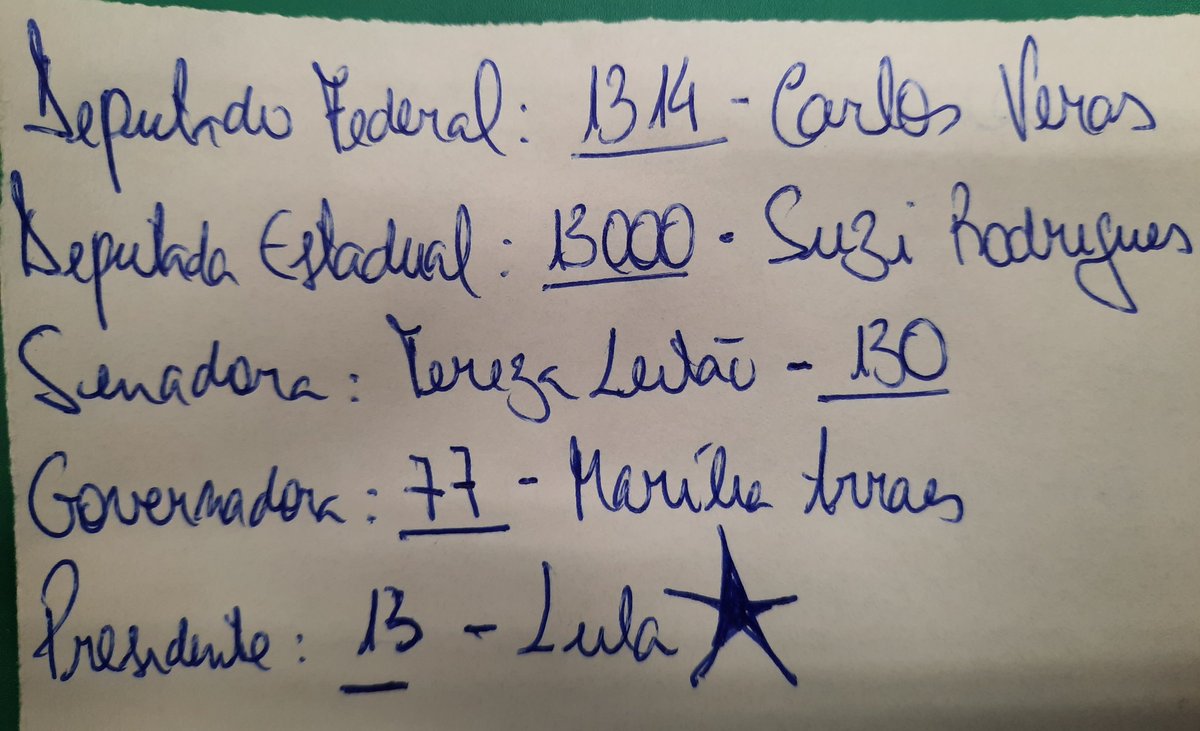 Deputado Federal: 1314 - Carlos Veras
Deputada Estadual: 13000 - Suzi Rodrigues
Senadora: Tereza Leitão - 130
Governadora: 77 - Marília Arraes
Presidente: 13 - Lula